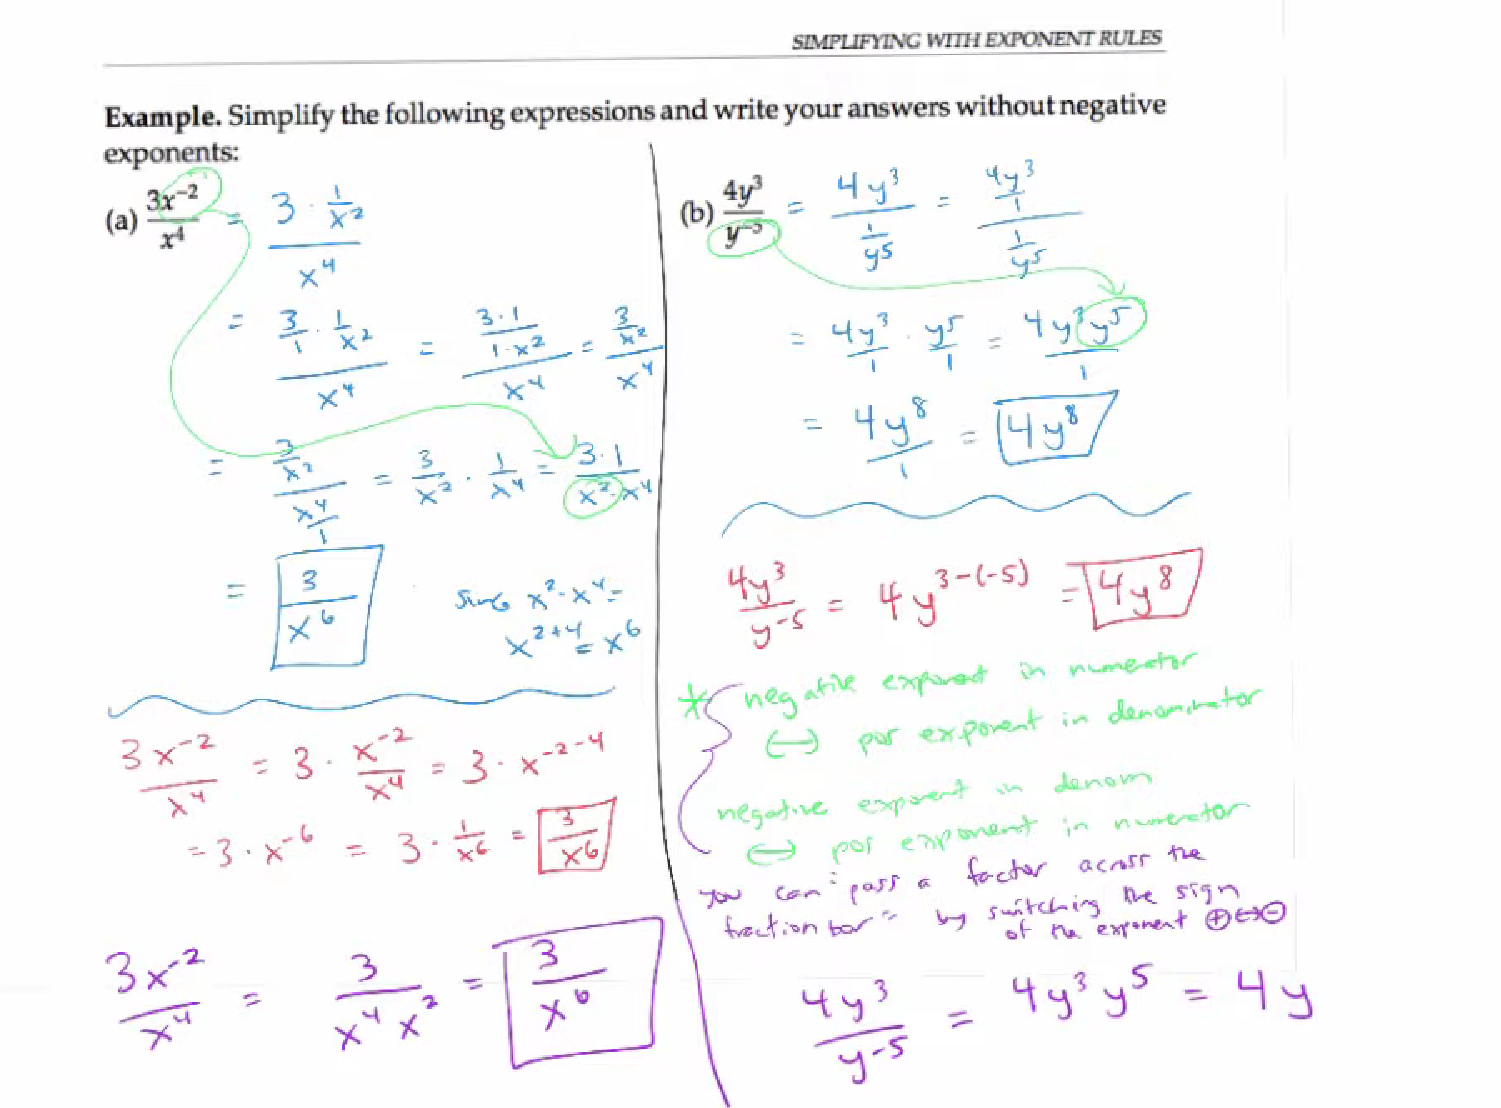 SIMPLIFYING WITH EXPONENT RULES
Example. Simplify the following expressions and write your answers without negative
exponents:
(a) 3x⁻²/x⁴ = (3 · 1/x²)/x⁴
= (3/1 · 1/x²)/x⁴ = ((3·1)/(1·x²))/x⁴ = (3/x²)/x⁴
= (3/x²)/(x⁴/1) = 3/x² · 1/x⁴ = (3·1)/(x²·x⁴)
= 3/x⁶
since x²·x⁴ =
x²⁺⁴ = x⁶
3x⁻²/x⁴ = 3 · x⁻²/x⁴ = 3 · x⁻²⁻⁴
= 3 · x⁻⁶ = 3 · 1/x⁶ = 3/x⁶
3x⁻²/x⁴ = 3/(x⁴x²) = 3/x⁶
(b) 4y³/y⁻⁵ = 4y³/(1/y⁵) = (4y³/1)/(1/y⁵)
= 4y³/1 · y⁵/1 = 4y³y⁵/1
= 4y⁸/1 = 4y⁸
4y³/y⁻⁵ = 4y³⁻⁽⁻⁵⁾ = 4y⁸
* negative exponent in numerator
↔ pos exponent in denominator
negative exponent in denom
↔ pos exponent in numerator
you can "pass a factor across the
fraction bar" by switching the sign
of the exponent ⊕↔⊖
4y³/y⁻⁵ = 4y³y⁵ = 4y